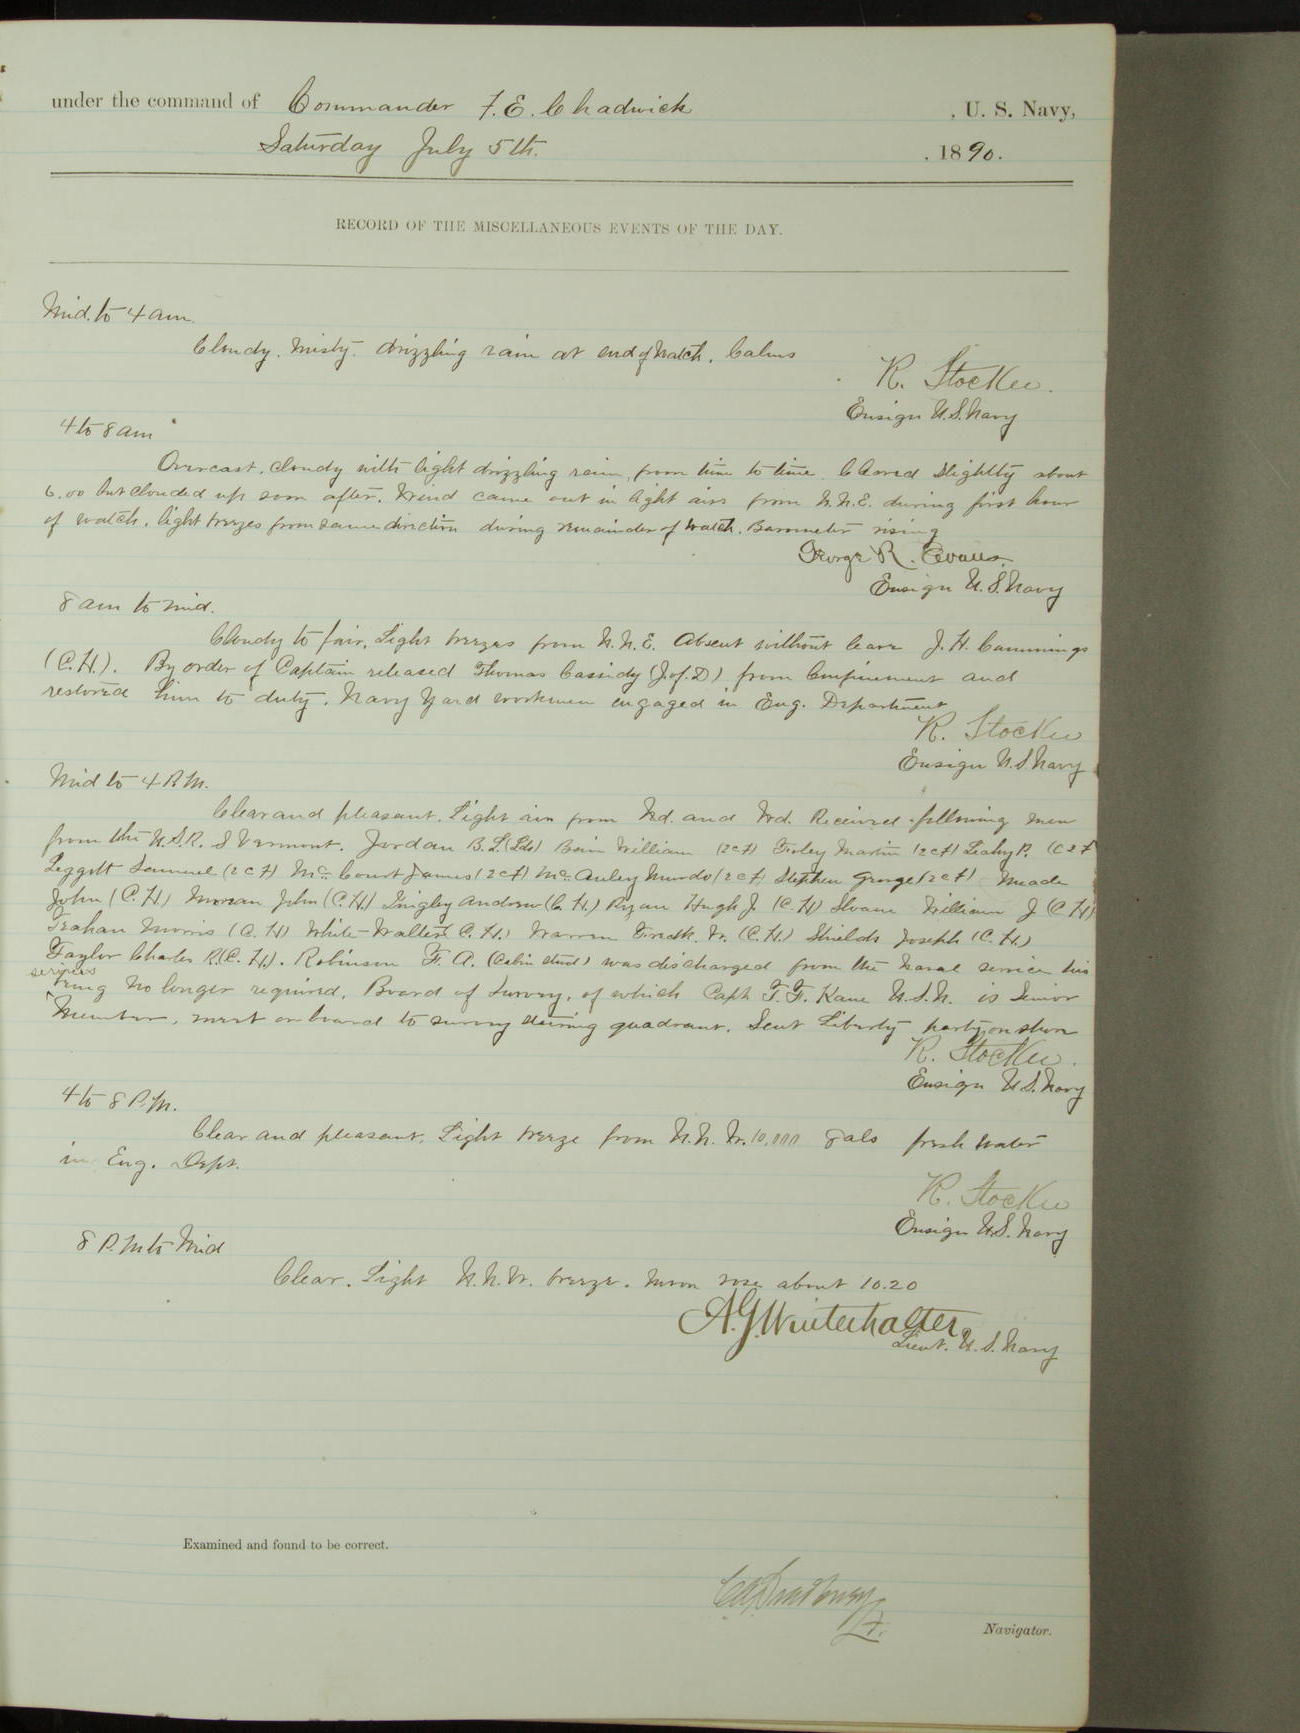 under the command of Commander F. E. Chadwick , U. S. Navy,
Saturday July 5th. , 1890.
RECORD OF THE MISCELLANEOUS EVENTS OF THE DAY.
Mid. to 4 am.
Cloudy. Misty. drizzling rain at end of watch. Calms
R. Stocker.
Ensign U.S. Navy
4 to 8 am
Overcast, cloudy with light drizzling rain, from time to time. Cleared slightly about
6.00 but clouded up soon after. Wind came out in light airs from N.N.E. during first hour
of watch. light breezes from same direction during remainder of watch. Barometer rising
George R. Evans.
Ensign U. S. Navy
8 am to mid.
Cloudy to fair. Light breezes from N.N.E. Absent without leave J. H. Cummings
(C.H.). By order of Captain released Thomas Cassidy (J.of.D) from Confinement and
restored him to duty. Navy Yard workmen engaged in Eng. Department
R. Stocker
Ensign U.S Navy
Mid to 4 P.M.
Clear and pleasant. Light airs from Nd. and Wd. Received following men
from the U.S.R. S Vermont. Jordan B.L. (Lds) Bain William (2cf) Foley Martin (2cf) Leahy P. (C2f
Leggett Samuel (2cf) McCourt James (2cf) McAuley Murdo (2cf) Stephen George (2cf) Meade
John (C.H.) Moran John (C.H.) Quigley Andrew (C.H.) Ryan Hugh J. (C.H) Sloane William J (C H)
Trahan Morris (C.H) White Walter C.H.) Warren Fredk. W. (C.H.) Shields Joseph (C.H.)
Taylor Charles R. (C.H.). Robinson F. A. (Cabin stwd) was discharged from the Naval service his
services
being no longer required. Board of Survey, of which Capt T. F. Kane U.S.N. is Senior
Member, met on board to survey steering quadrant. Sent Liberty party on shore
R. Stocker.
Ensign U.S. Navy
4 to 8 P.M.
Clear and pleasant. Light breeze from N.N.W. 10,000 gals fresh water
in Eng. Dept.
R. Stocker
Ensign U.S. Navy
8 P.M. to Mid
Clear. Light N.N.W. breeze. Moon rose about 10.20
A.G. Winterhalter
Lieut. U. S. Navy
Examined and found to be correct.
Lt.
Navigator.